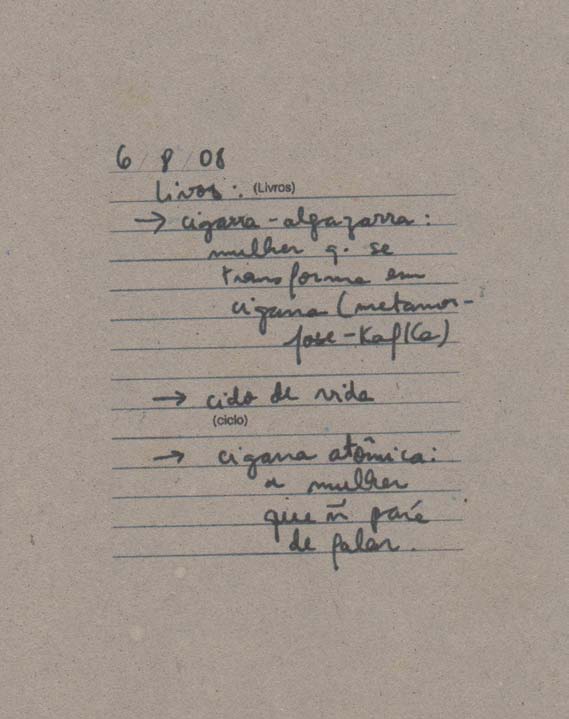 6 / 8 / 08
Livos: (Livros)
→ cigarra-algazarra:
mulher q. se
transforma em
cigarra (metamor-
fose-Kafka)
→ ciclo de vida
(ciclo)
→ cigarra atômica:
a mulher
que ñ pára
de falar.